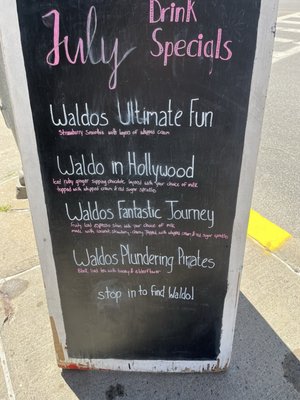 July Drink
Specials
Waldos Ultimate Fun
Strawberry Smoothie with layers of whipped cream
Waldo in Hollywood
Iced ruby ginger sipping chocolate, layered with your choice of milk
topped with whipped cream & red sugar sprinkles
Waldos Fantastic Journey
Fruity iced espresso with your choice of milk
made with coconut, strawberry, cherry, topped with whipped cream & red sugar sprinkles
Waldos Plundering Pirates
Black iced tea with honey & elderflower
stop in to find Waldo!